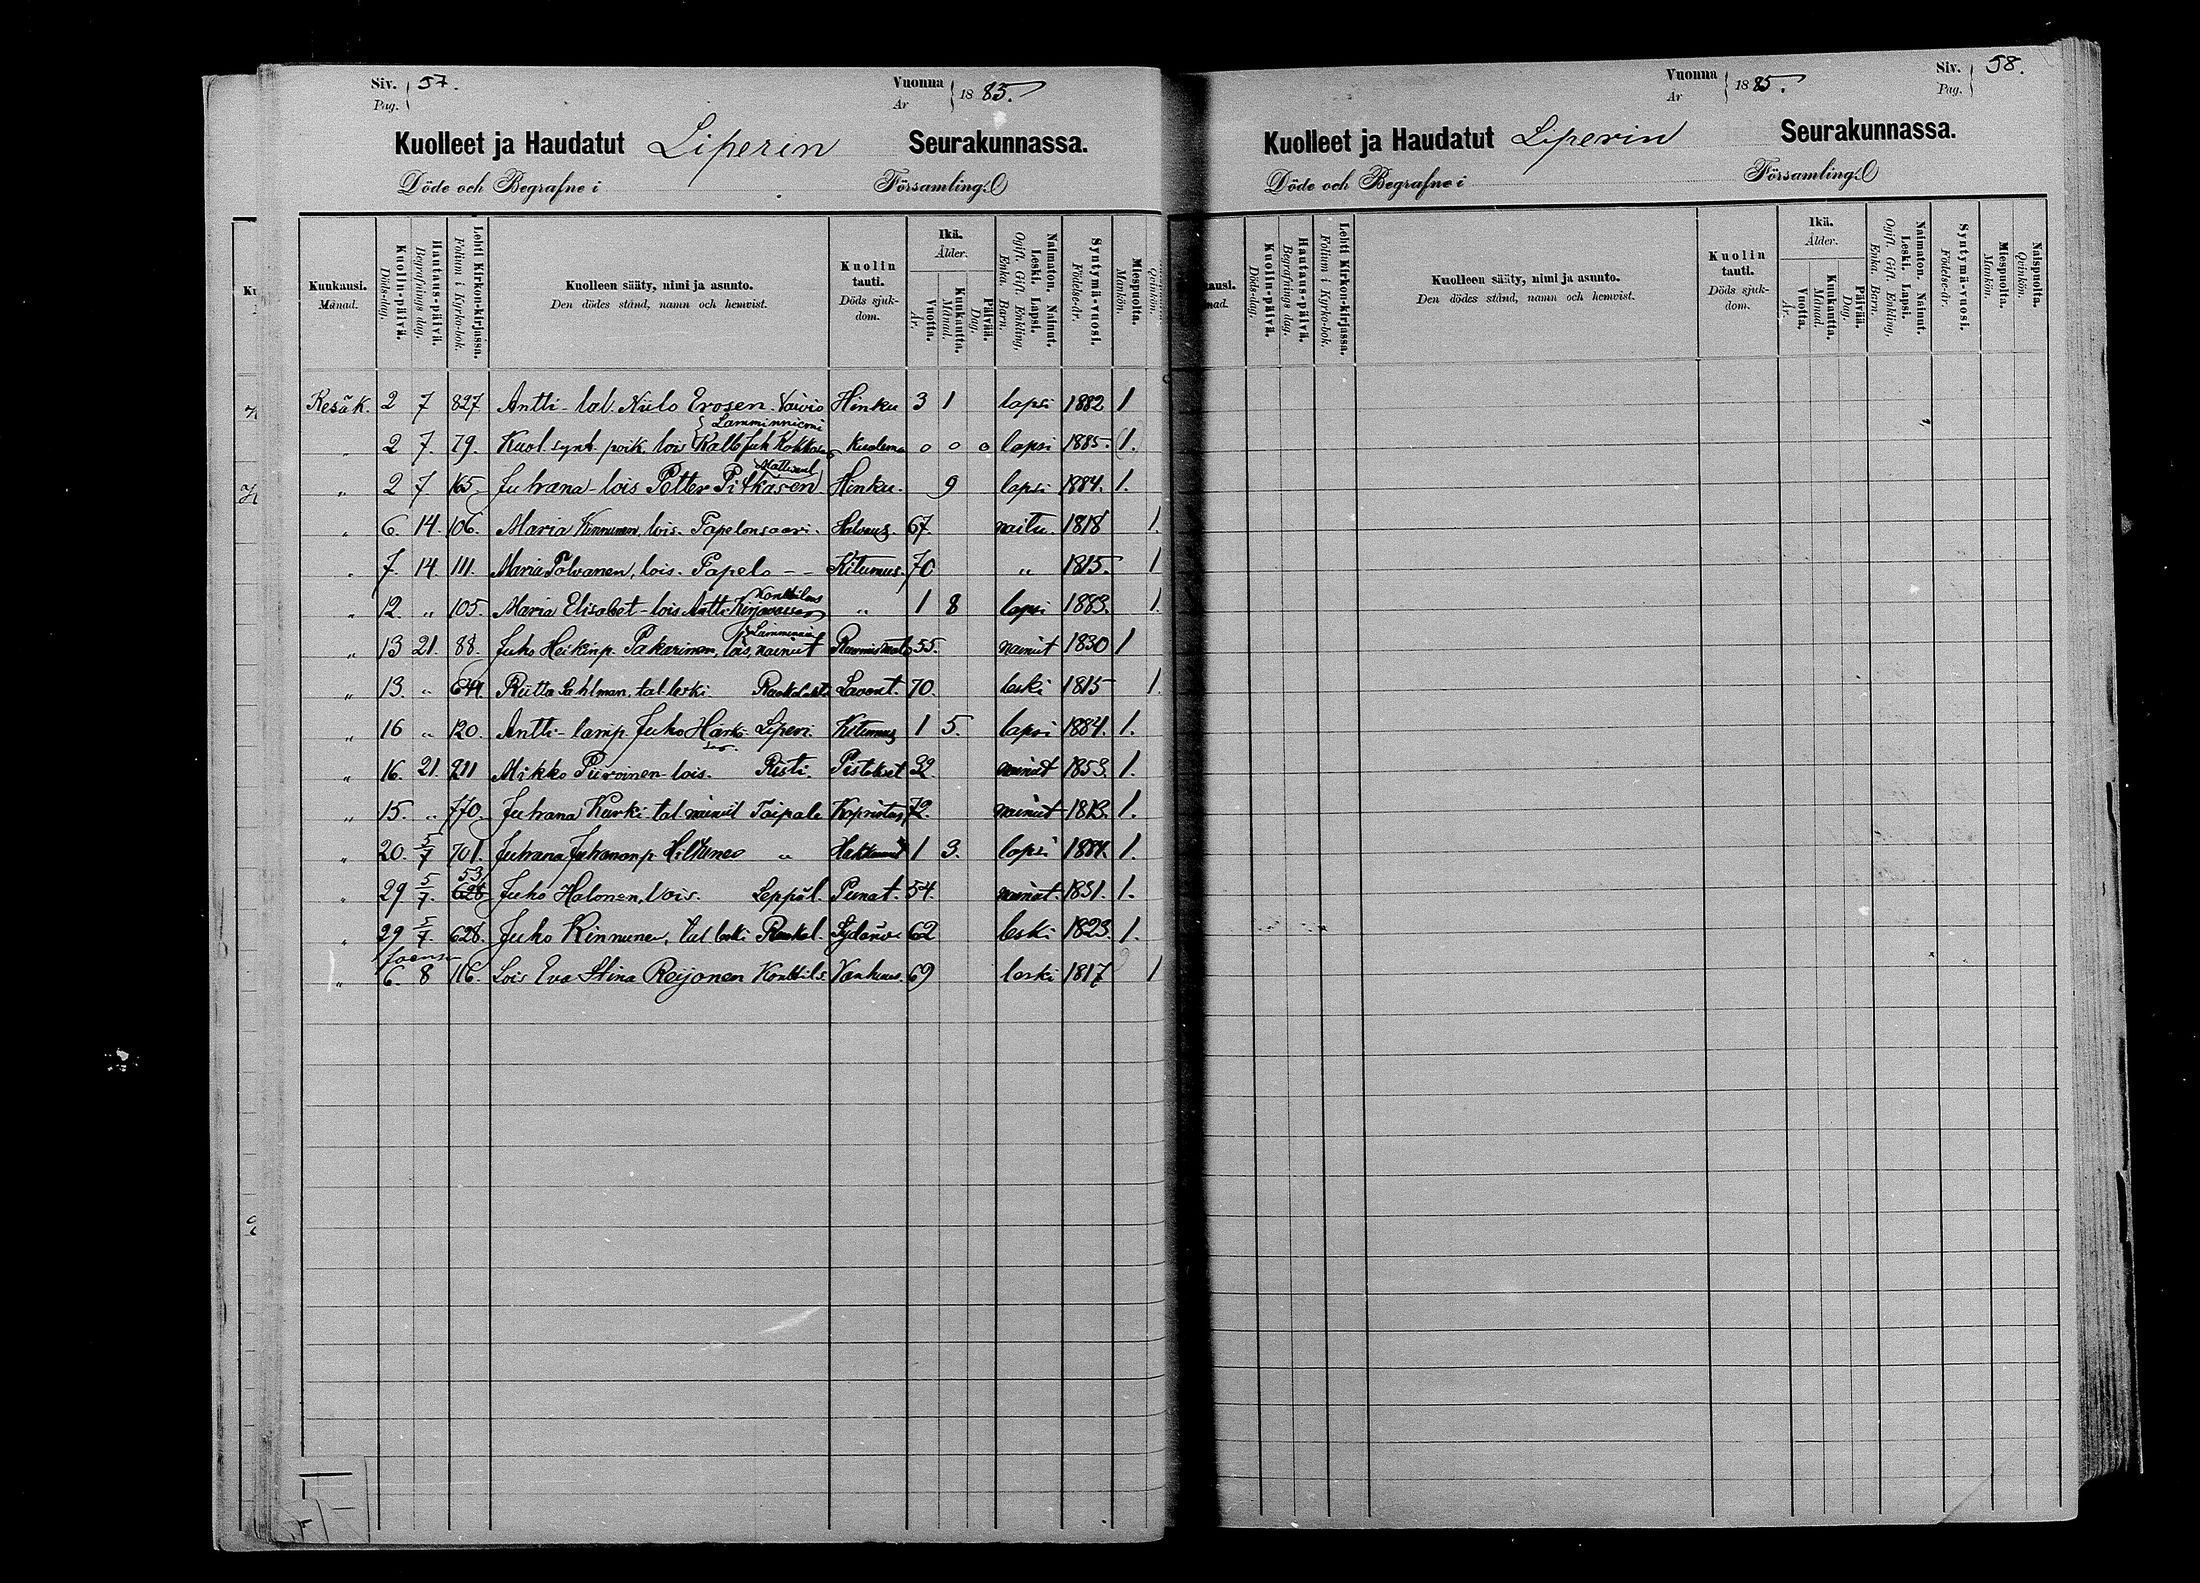 Siv. 57. Vuonna 1885.
Pag. År
Kuolleet ja Haudatut Liperin Seurakunnassa.
Döde och Begrafne i Församling.
Kuukausi. Månad. Kuolin-päivä. Döds-dag. Hautaus-päivä. Begrafnings dag. Lehti Kirkon-kirjassa. Folium i Kyrko-bok. Kuolleen sääty, nimi ja asunto. Den dödes stånd, namn och hemvist. Kuolin tauti. Döds sjuk-dom. Ikä. Ålder. Vuotta. År. Kuukautta. Månad. Päivää. Dag. Naimaton. Nainut. Leski. Lapsi. Ogift. Gift. Enkling, Enka. Barn. Syntymä-vuosi. Födelse-år. Miespuolta. Mankön. Qvinkön.
Kesäk. 2 7 827 Antti - tal. Niilo Erosen - Vaivio Hinku 3 1 lapsi 1882 1
Lamminniemi
" 2 7. 79. Kuol. synt. poik. lois Kalle Juh Kokkosen Kuolema 0 0 0 lapsi 1885. 1.
" 2 7 165. Juhana - lois Petter Pitkäsen Hinku. 9 lapsi 1884. 1.
" 6. 14. 106. Maria Kinnunen, lois. Papelonsaari. 67. naitu. 1818 1.
" 7. 14. 111. Maria Polvanen, lois. Papelo - - Kitumus. 70 " 1815. 1
" 12. " 105. Maria Elisabet - lois Antti " 1 8 lapsi 1883. 1.
" 13 21. 88. Juho Heikinp. Pakarinen, lois, nainut 55. nainut 1830 1
" 13. " Riitta Sahlman. tal leski Lavant. 70. leski 1815 1.
" 16 " 120. Antti - lamp. Juho Liperi. Kitumus 1 5. lapsi 1884. 1.
" 16. 21. 211 Mikko Piiroinen - lois. Risti. Pistokset 32. nainut 1853. 1.
" 15. " 770. Juhana Kurki tal nainut Taipale 72. nainut 1813. 1.
" 20. 5/7 701. Juhana Juhananp Hiltunen " 1 3. lapsi 1884. 1.
53
" 29 5/7. 628 Juho Halonen, lois. Leppäl. Punat. 54. nainut. 1831. 1.
" 29 5/7. 628. Juho Kinnunen, tal leski Raakal. 62 leski 1823. 1.
" 6. 8 116. Lois Eva Stina Reijonen Konttila Vanhuus. 69 leski 1817 1
Vuonna 1885. Siv. 58.
År Pag.
Kuolleet ja Haudatut Liperin Seurakunnassa.
Döde och Begrafne i Församling.
Kuolin-päivä. Döds-dag. Hautaus-päivä. Begrafnings dag. Lehti Kirkon-kirjassa. Folium i Kyrko-bok. Kuolleen sääty, nimi ja asunto. Den dödes stånd, namn och hemvist. Kuolin tauti. Döds sjuk-dom. Ikä. Ålder. Vuotta. År. Kuukautta. Månad. Päivää. Dag. Naimaton. Nainut. Leski. Lapsi. Ogift. Gift. Enkling, Enka. Barn. Syntymä-vuosi. Födelse-år. Miespuolta. Mankön. Naispuolta. Qvinkön.